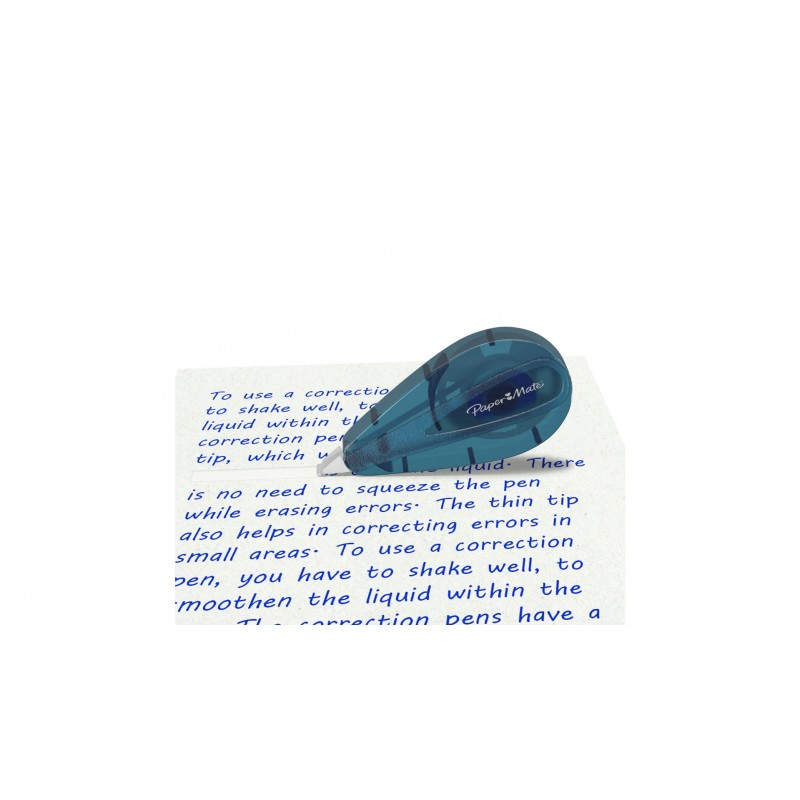 To use a correctio
to shake well, to
liquid within th
correction pen
tip, which
liquid. There
is no need to squeeze the pen
while erasing errors. The thin tip
also helps in correcting errors in
small areas. To use a correction
pen, you have to shake well, to
moothen the liquid within the
The correction pens have a
Paper Mate